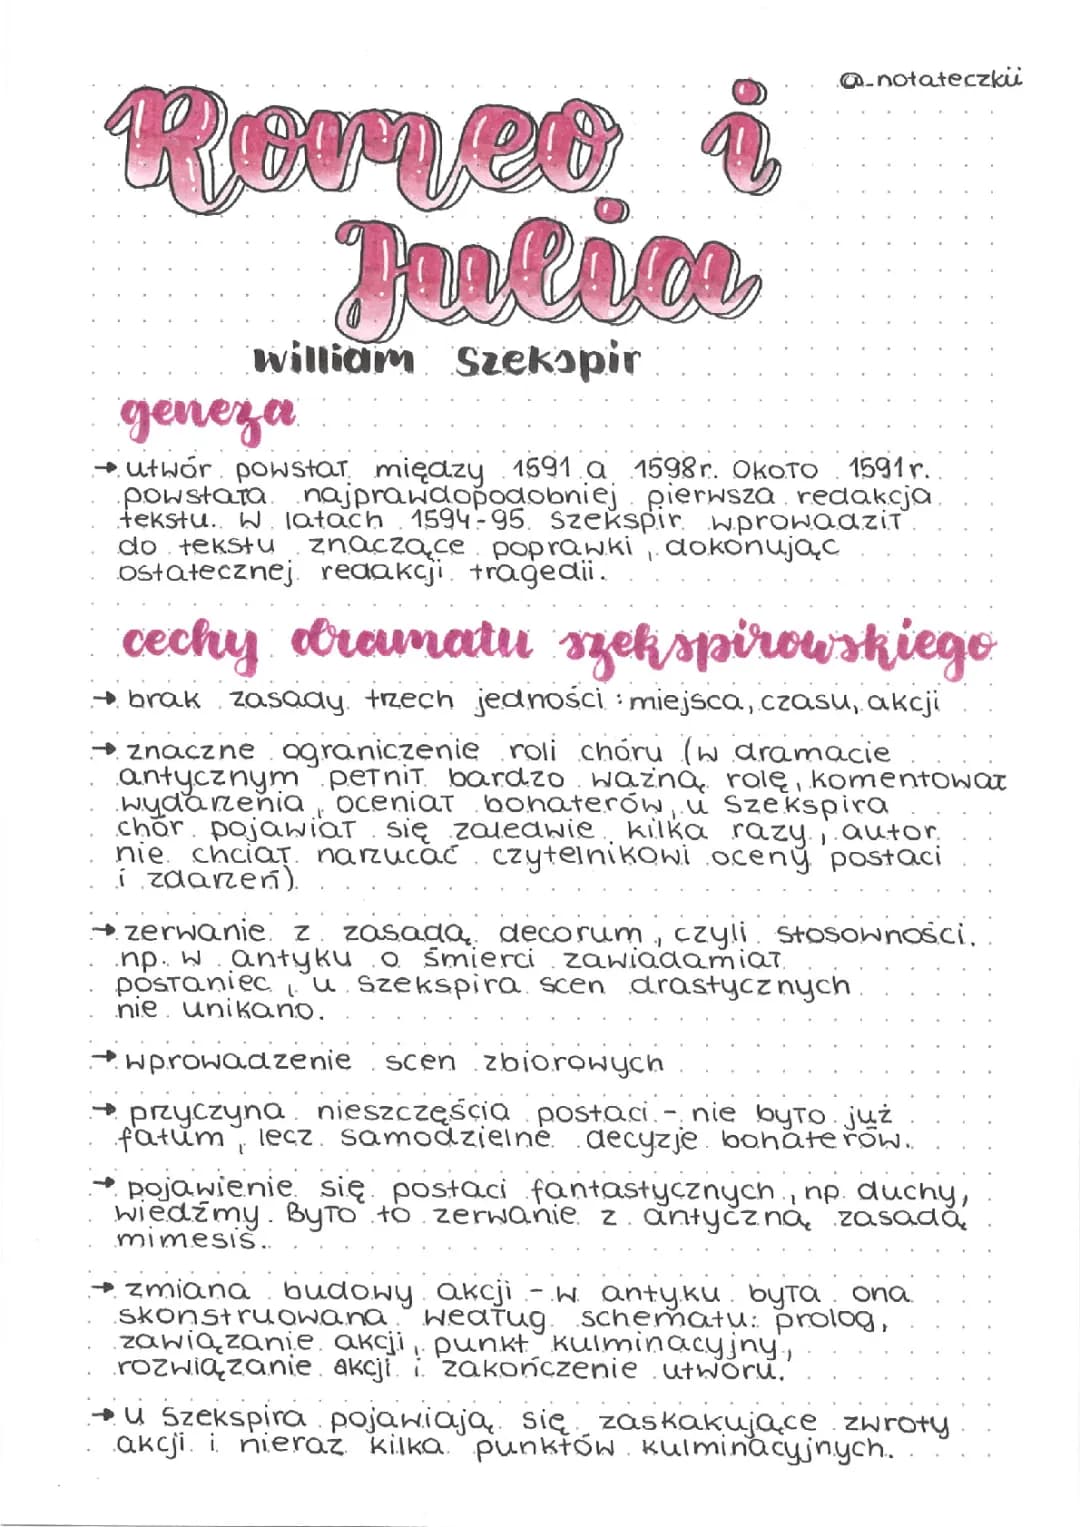 @_notateczkii
Romeo i
Julia
William Szekspir
geneza
→ utwór powstał między 1591 a 1598r. Około 1591r.
powstała najprawdopodobniej pierwsza redakcja
tekstu. W latach 1594-95 Szekspir wprowadził
do tekstu znaczące poprawki, dokonując
ostatecznej redakcji tragedii.
cechy dramatu szekspirowskiego
→ brak zasady trzech jedności: miejsca, czasu, akcji
→ znaczne ograniczenie roli chóru (w dramacie
antycznym pełnił bardzo ważną rolę, komentował
wydarzenia, oceniał bohaterów, u Szekspira
chór pojawiał się zaledwie kilka razy, autor
nie chciał narzucać czytelnikowi oceny postaci
i zdarzeń).
→ zerwanie z zasadą decorum, czyli stosowności.
np. w antyku o śmierci zawiadamiał
posłaniec, u Szekspira scen drastycznych
nie unikano.
→ wprowadzenie scen zbiorowych
→ przyczyna nieszczęścia postaci - nie było już
fatum, lecz samodzielne decyzje bohaterów.
→ pojawienie się postaci fantastycznych, np. duchy,
wiedźmy. Było to zerwanie z antyczną zasadą
mimesis.
→ zmiana budowy akcji - w antyku była ona
skonstruowana według schematu: prolog,
zawiązanie akcji, punkt kulminacyjny,
rozwiązanie akcji i zakończenie utworu.
→ u Szekspira pojawiają się zaskakujące zwroty
akcji i nieraz kilka punktów kulminacyjnych.